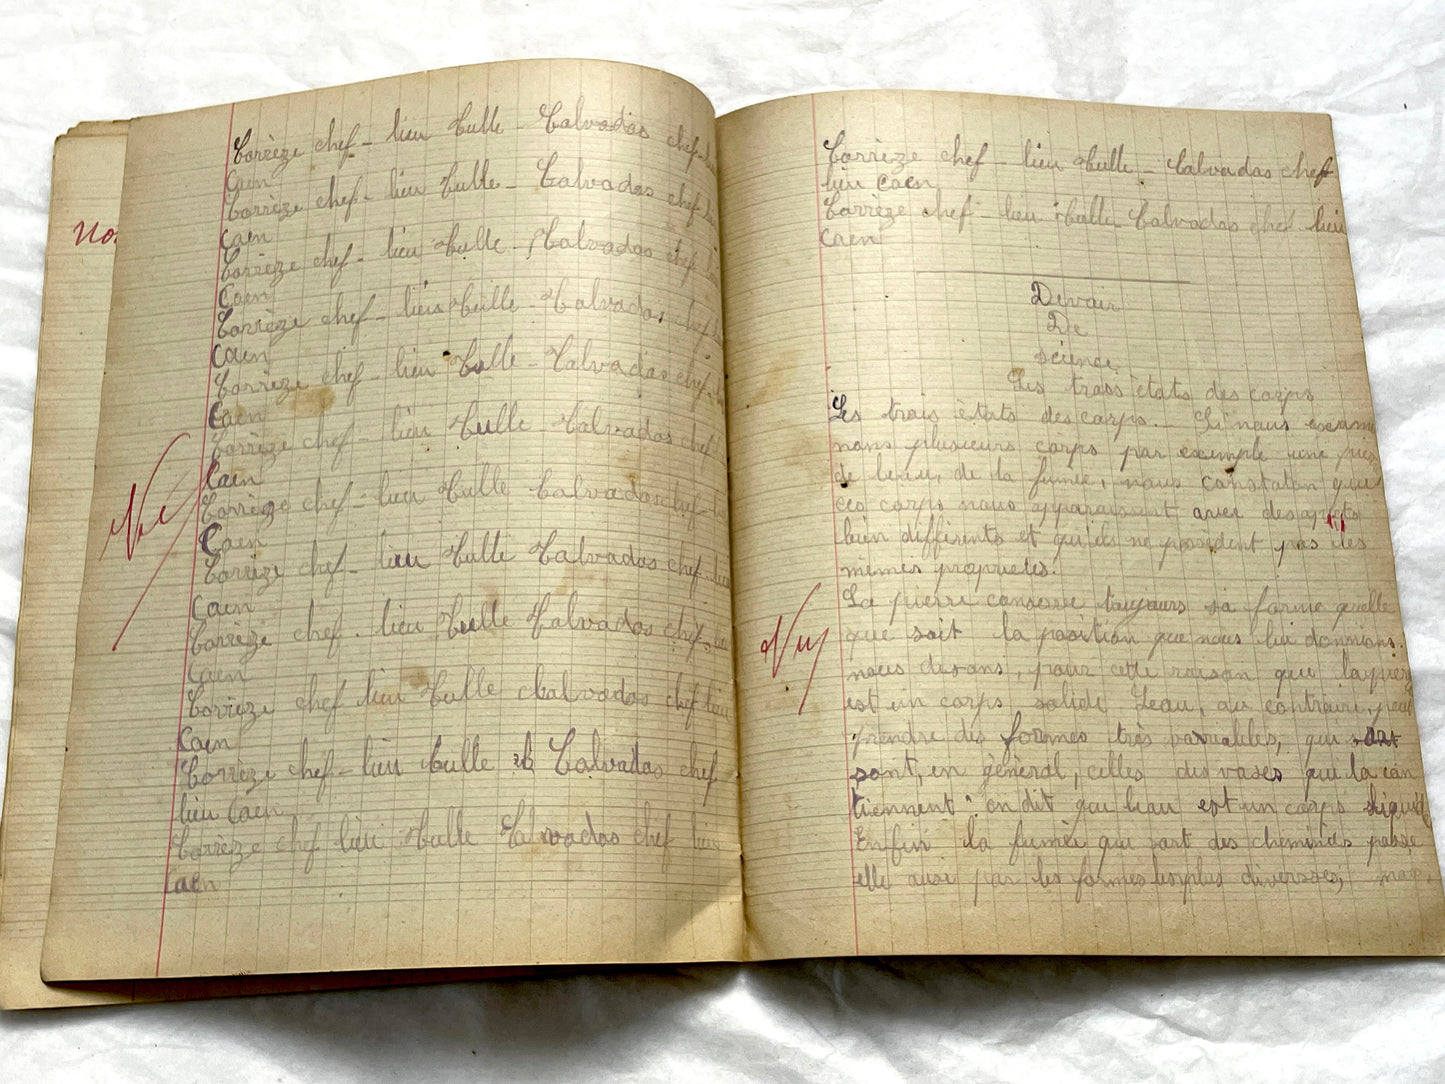 No
Corrèze chef-lieu Tulle - Calvados chef-
Caen
Corrèze chef-lieu Tulle - Calvados chef
Caen
Corrèze chef-lieu Tulle - Calvados chef
Caen
Corrèze chef-lieu Tulle - Calvados chef
Caen
Corrèze chef-lieu Tulle - Calvados chef-
Caen
Corrèze chef-lieu Tulle - Calvados chef
Caen
Corrèze chef-lieu Tulle Calvados chef-
Caen
Corrèze chef-lieu Tulle Calvados chef lieu
Caen
Corrèze chef-lieu Tulle Calvados chef-
Caen
Corrèze chef lieu Tulle Calvados chef lieu
Caen
Corrèze chef-lieu Tulle Calvados chef
lieu Caen
Corrèze chef lieu Tulle Calvados chef lieu
Caen
Vu
Corrèze chef-lieu Tulle - Calvados chef
lieu Caen
Corrèze chef-lieu Tulle Calvados chef lieu
Caen
Devoir
De
science
Les trois états des corps
Les trois états des corps. Si nous exami
nons plusieurs corps par exemple une
de l'eau, de la fumée, nous constaton que
ces corps nous apparaissent avec des aspects
bien différents et qu'ils ne possèdent pas les
mêmes propriétés.
La pierre conserve toujours sa forme quelle
que soit la position que nous lui donnions.
nous disons, pour cette raison que la pierre
est un corps solide L'eau, au contraire, peut
prendre des formes très variables, qui
sont, en général, celles des vases qui la con
tiennent : on dit que l'eau est un corps liquid
Enfin la fumée qui sort des cheminés passe
elle aussi par les formes les plus diverses,
Vu